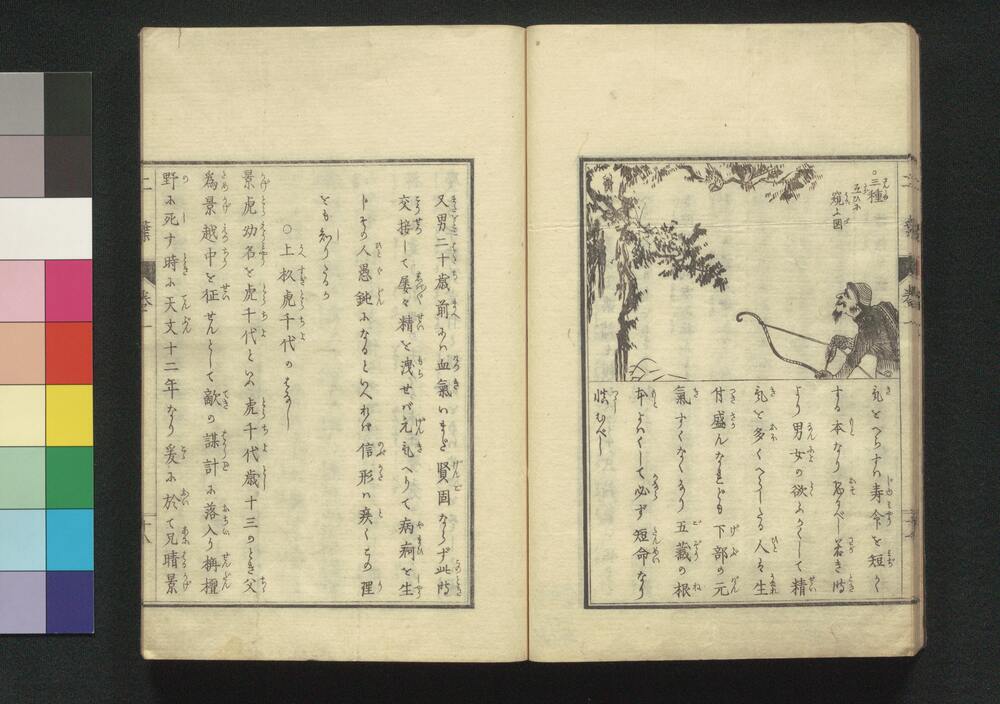 ○三種
五ひに
窺ふ図
気をへらすハ寿命を短く
する本なり恐るべし若き時
より男女の欲ふかくして精
気を多くへらしたる人々生
付盛んなれども下部の元
氣すくなくなり五藏の根
本よハくして必ず短命なり
慎むべし
又男二十歳前ハ血氣いまだ賢固ならず此時
交接して屡々精を洩せバ元気へりて病痾を生
じその人愚鈍になるといへれば信形ハ疾くその理
とも知りたるか
○上杦虎千代のはなし
景虎幼名を虎千代といふ虎千代歳十三のとき父
為景越中を征せんとして敵の謀計に落入り栴檀
野に死す時に天文十二年なり爰に於て兄晴景